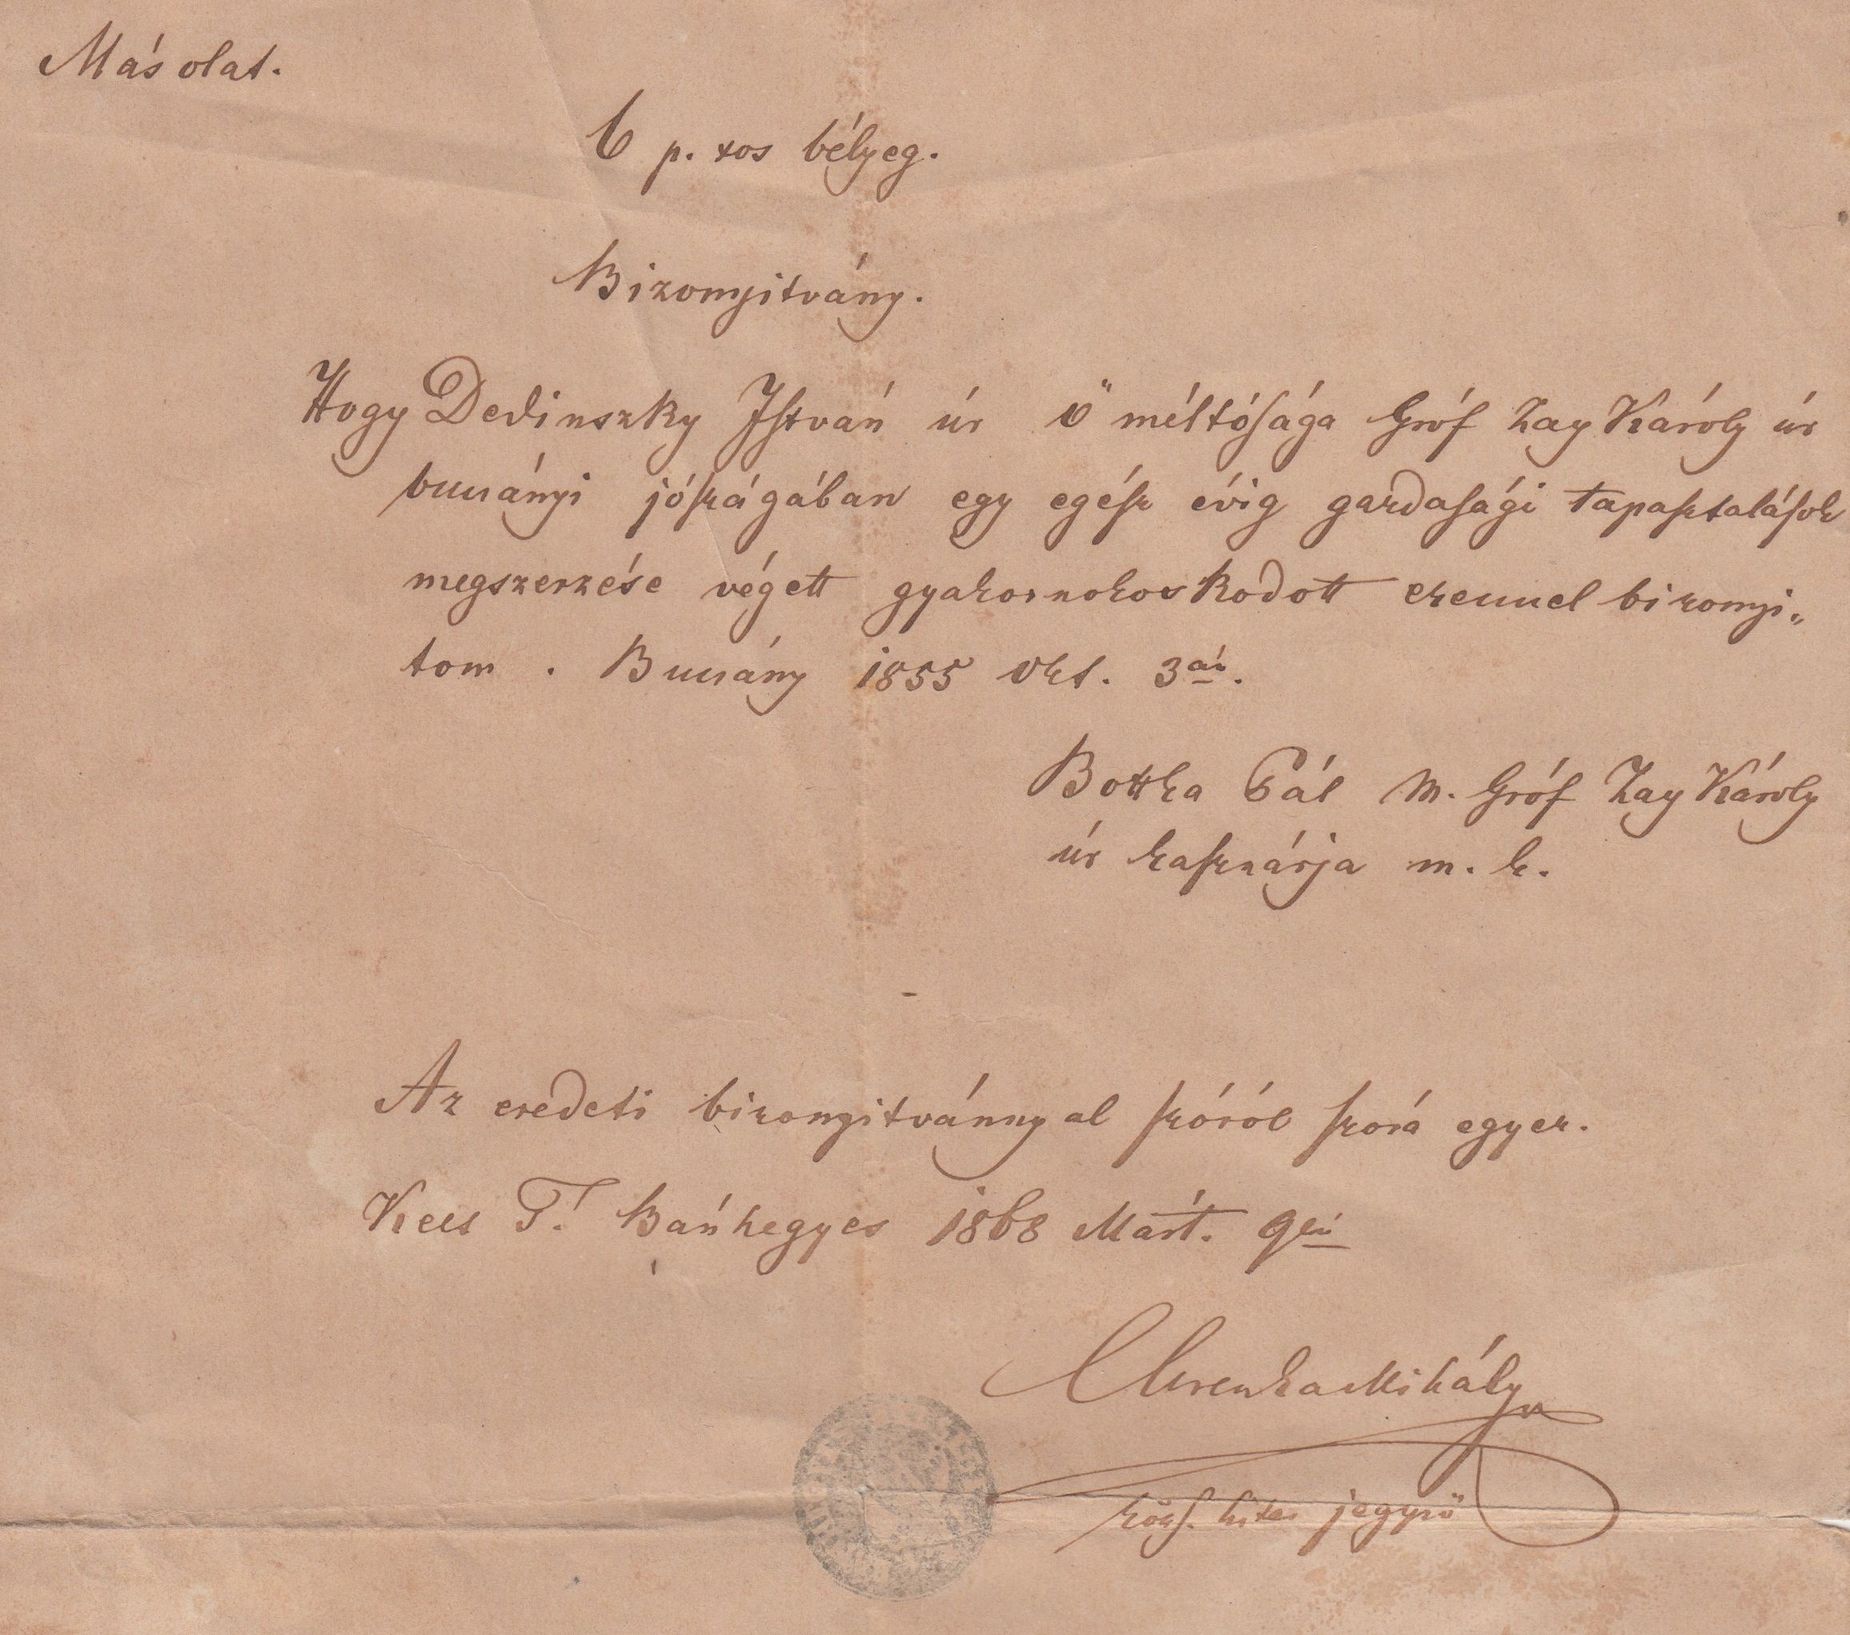 Másolat.
6 p. xos bélyeg.
Bizonyitvány.
Hogy Dedinszky István úr ő méltósága Gróf Zay Károly úr
bucsányi jószágában egy egész évig gazdasági tapasztalások
megszerzése végett gyakornokoskodott ezennel bizonyi„
tom. Bucsány 1855 Okt. 3án.
Bottka Pál M. Gróf Zay Károly
úr kasznárja m. k.
Az eredeti bizonyitvánnyal szóról szóra egyez.
Kelt T. Bánhegyes 1868 Márt. 9én
Mihály
közs. hites jegyző